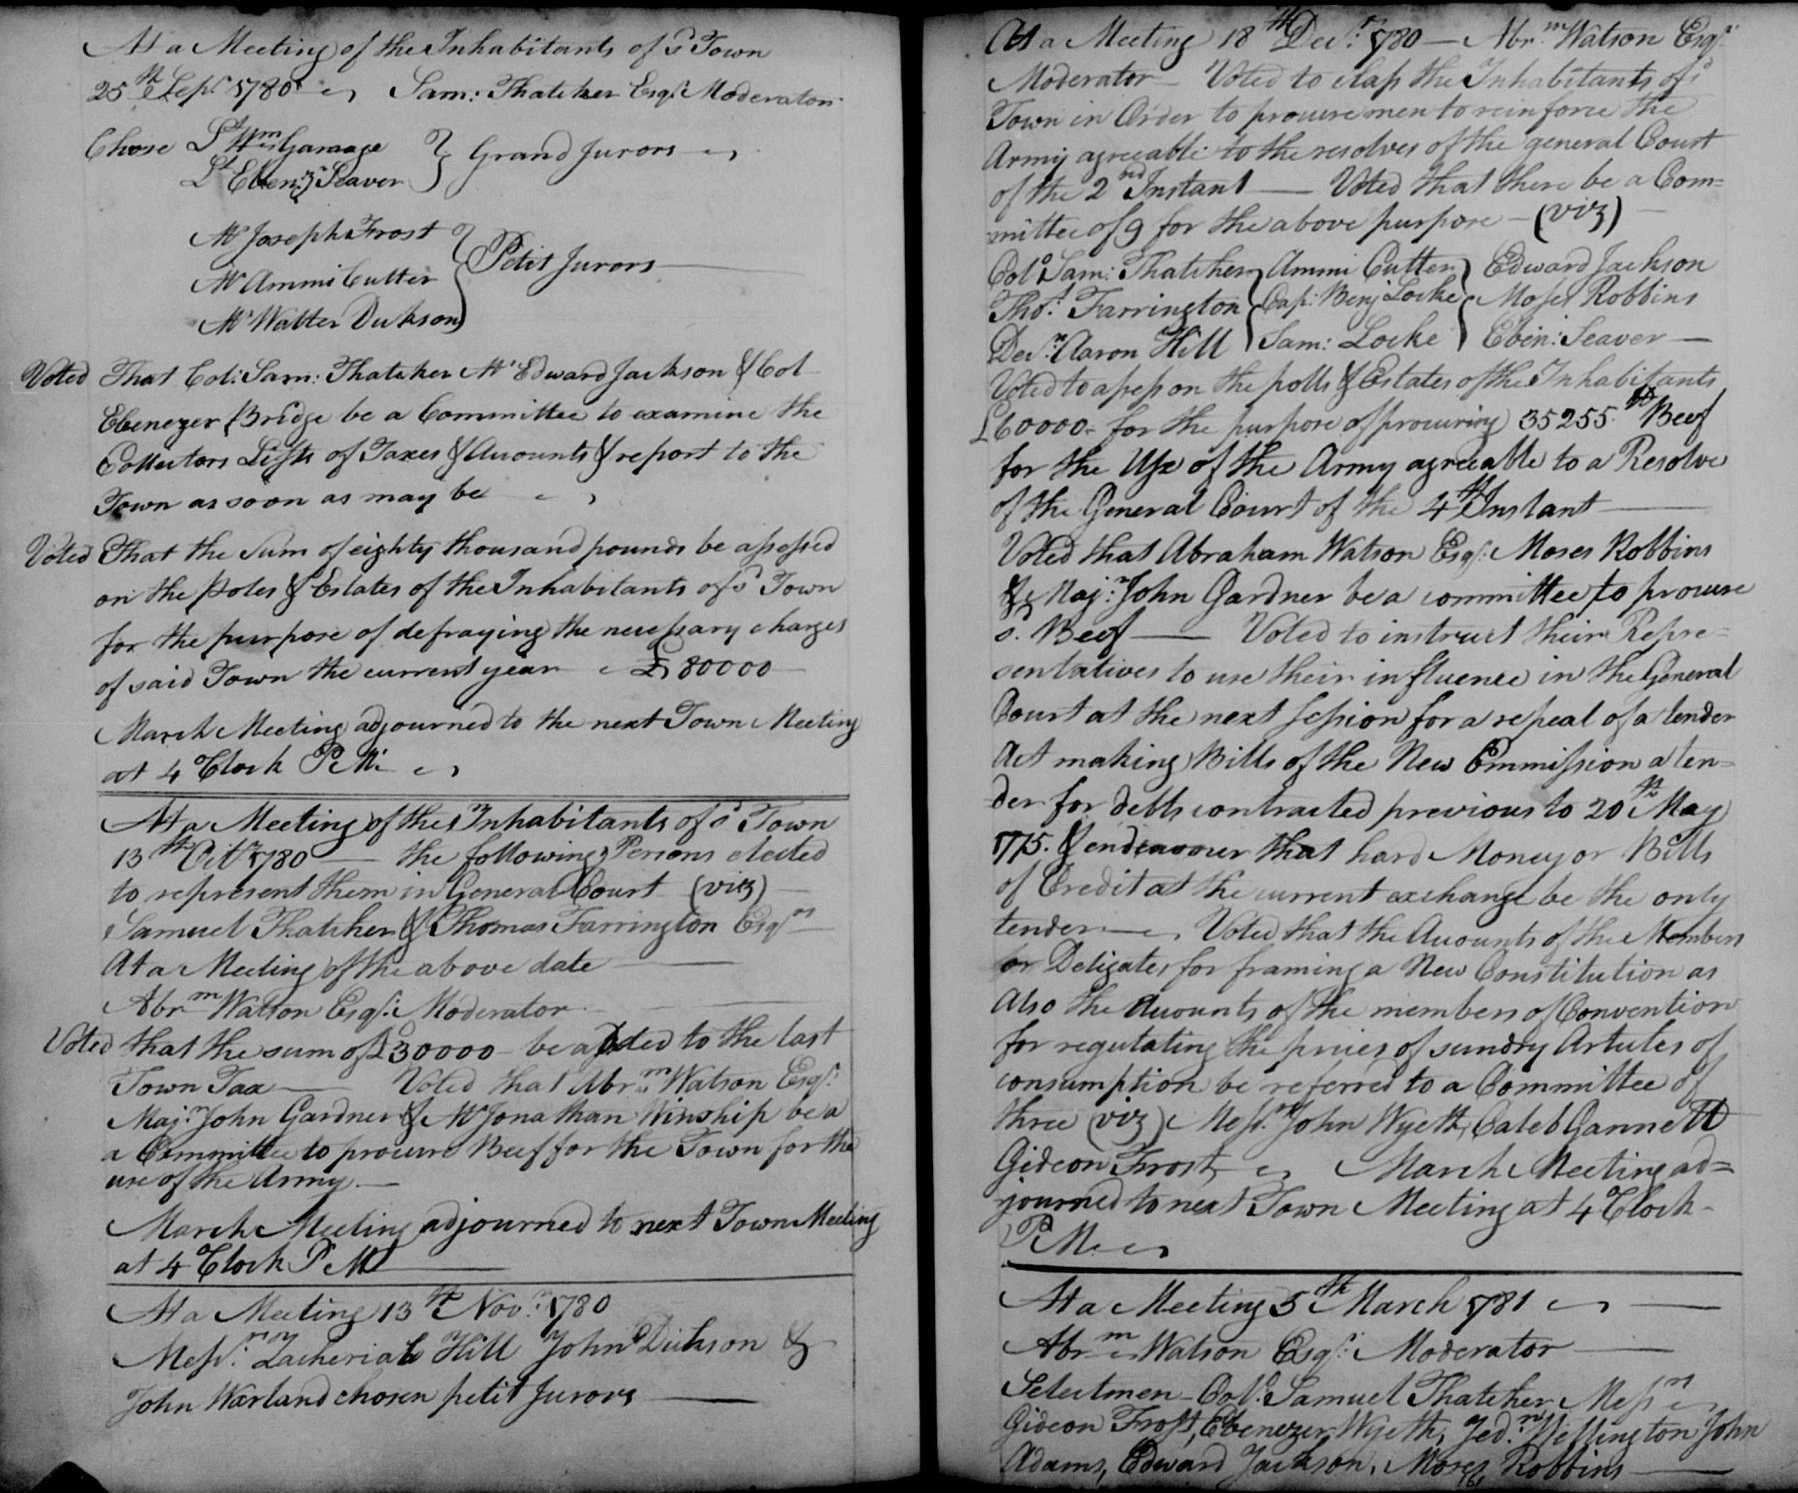 At a Meeting of the Inhabitants of sd Town
25th Sepr 1780 Sam: Thatcher Esqr Moderator
Chose Lt Wm Gamage } Grand Jurors
Lt Ebenr Seaver
Mr Joseph Frost
Mr Ammi Cutter } Petit Jurors
Mr Walter Dickson
Voted That Col: Sam: Thatcher Mr Edward Jackson & Col
Ebenezer Bridge be a Committee to examine the
Collectors Lists of Taxes & Accounts & report to the
Town as soon as may be
Voted That the Sum of eighty thousand pounds be assessed
on the Poles & Estates of the Inhabitants of sd Town
for the purpose of defraying the necessary charges
of said Town the current year £80000
March Meeting adjourned to the next Town Meeting
at 4 Clock P M
At a Meeting of the Inhabitants of sd Town
13th Octr 1780 — the following Persons elected
to represent them in General Court (viz)
Samuel Thatcher & Thomas Farrington Esqrs
At a Meeting of the above date
Abrm Watson Esqr: Moderator
Voted that the sum of £30000 - be added to the last
Town Tax — Voted that Abrm Watson Esqr:
Majr: John Gardner & Mr Jonathan Winship be a
a Committee to procure Beef for the Town for the
use of the Army —
March Meeting adjourned to next Town Meeting
at 4 Clock P M
At a Meeting 13th Novr: 1780
Messrs: Zacheriah Hill John Dickson &
John Warland chosen petit Jurors
At a Meeting 18th Decr: 1780 — Abrm Watson Esqr:
Moderator — Voted to class the Inhabitants of sd
Town in Order to procure men to reinforce the
Army agreeable to the resolves of the general Court
of the 2nd Instant — Voted that there be a Com=
mittee of 9 for the above purpose — (viz)
Colo Sam: Thatcher } Ammi Cutter } Edward Jackson
Thos. Farrington } Cap: Benj Locke } Moses Robbins
Decn: Aaron Hill } Sam: Locke } Eben: Seaver —
Voted to assess on the polls & Estates of the Inhabitants
£60000- for the purpose of procuring 35255 lb Beef
for the Use of the Army agreeable to a Resolve
of the General Court of the 4th Instant
Voted that Abraham Watson Esqr: Moses Robbins
& Majr: John Gardner be a committee to procure
sd. Beef — Voted to instruct their Repre=
sentatives to use their influence in the General
Court at the next session for a repeal of a tender
Act making Bills of the New Emmission a ten=
der for debts contracted previous to 20th May
1775. & endeavour that hard Money or Bills
of Credit at the current exchange be the only
tender — Voted that the Accounts of the Members
or Deligates for framing a New Constitution as
Also the Accounts of the members of Convention
for regulating the prices of sundry Articles of
consumption be referred to a Committee of
three (viz) Messrs: John Wyeth, Caleb Gannett
Gideon Frost, March Meeting ad=
journed to next Town Meeting at 4 Clock
P M
At a Meeting 5th March 1781
Abrm Watson Esqr: Moderator
Selectmen - Colo: Samuel Thatcher Messrs
Gideon Frost, Ebenezer Wyeth, Jedn: Wellington John
Adams, Edward Jackson, Moses Robbins